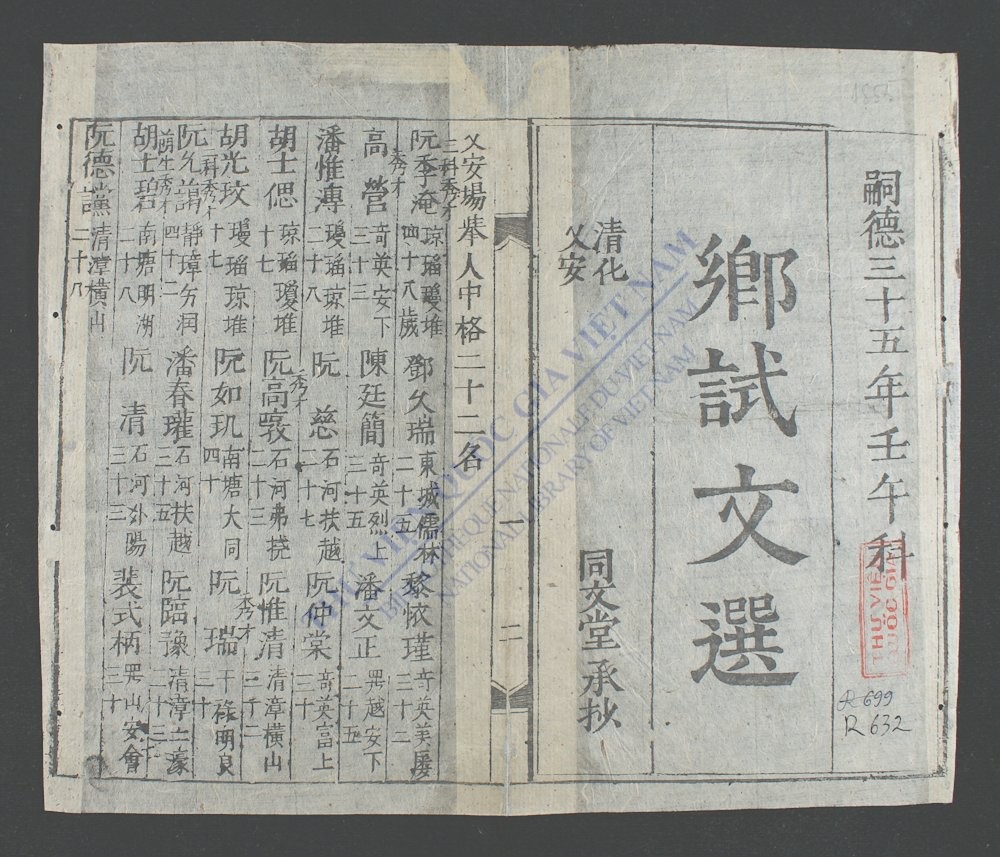 嗣德三十五年壬午科
鄉試文選
清化
乂安
同文堂承抄
一
二
乂安場舉人中格二十二名
三科秀才
阮季淹 瓊瑠瓊堆 四十八歲 鄧久瑞 東城儒林 二十五 黎依瑾 奇英美屡 三十二
秀才
高營 奇英安下 三十三 陳廷簡 奇英烈上 三十五 潘文正 羅越安下 二十五
潘惟溥 瓊瑠瓊堆 二十八 阮慈 石河扶越 二十七 阮仲棠 奇英富上 三十
胡士偲 瓊瑠瓊堆 十七 秀才 阮高敦 石河弗撓 二十三 阮惟清 清漳橫山 二十
胡光玟 瓊瑠瓊堆 十七 阮如玑 南塘大同 四十 秀才 阮瑞 干祿明良 三十
二科秀才
阮允詥 靜璋芳润 四十二 潘春瓘 石河扶越 三十五 阮臨豫 清漳 二十三
蔭生秀才
胡士碧 南塘明湖 二十八 阮清 石河外陽 三十三 裴式柄 羅山安會 三十
阮德讜 清漳橫山 二十八
THƯ VIỆN QUỐC GIA VIỆT NAM
BIBLIOTHEQUE NATIONALE DU VIETNAM
NATIONAL LIBRARY OF VIETNAM
THƯ VIỆN
QUỐC GIA
R 699
R 632